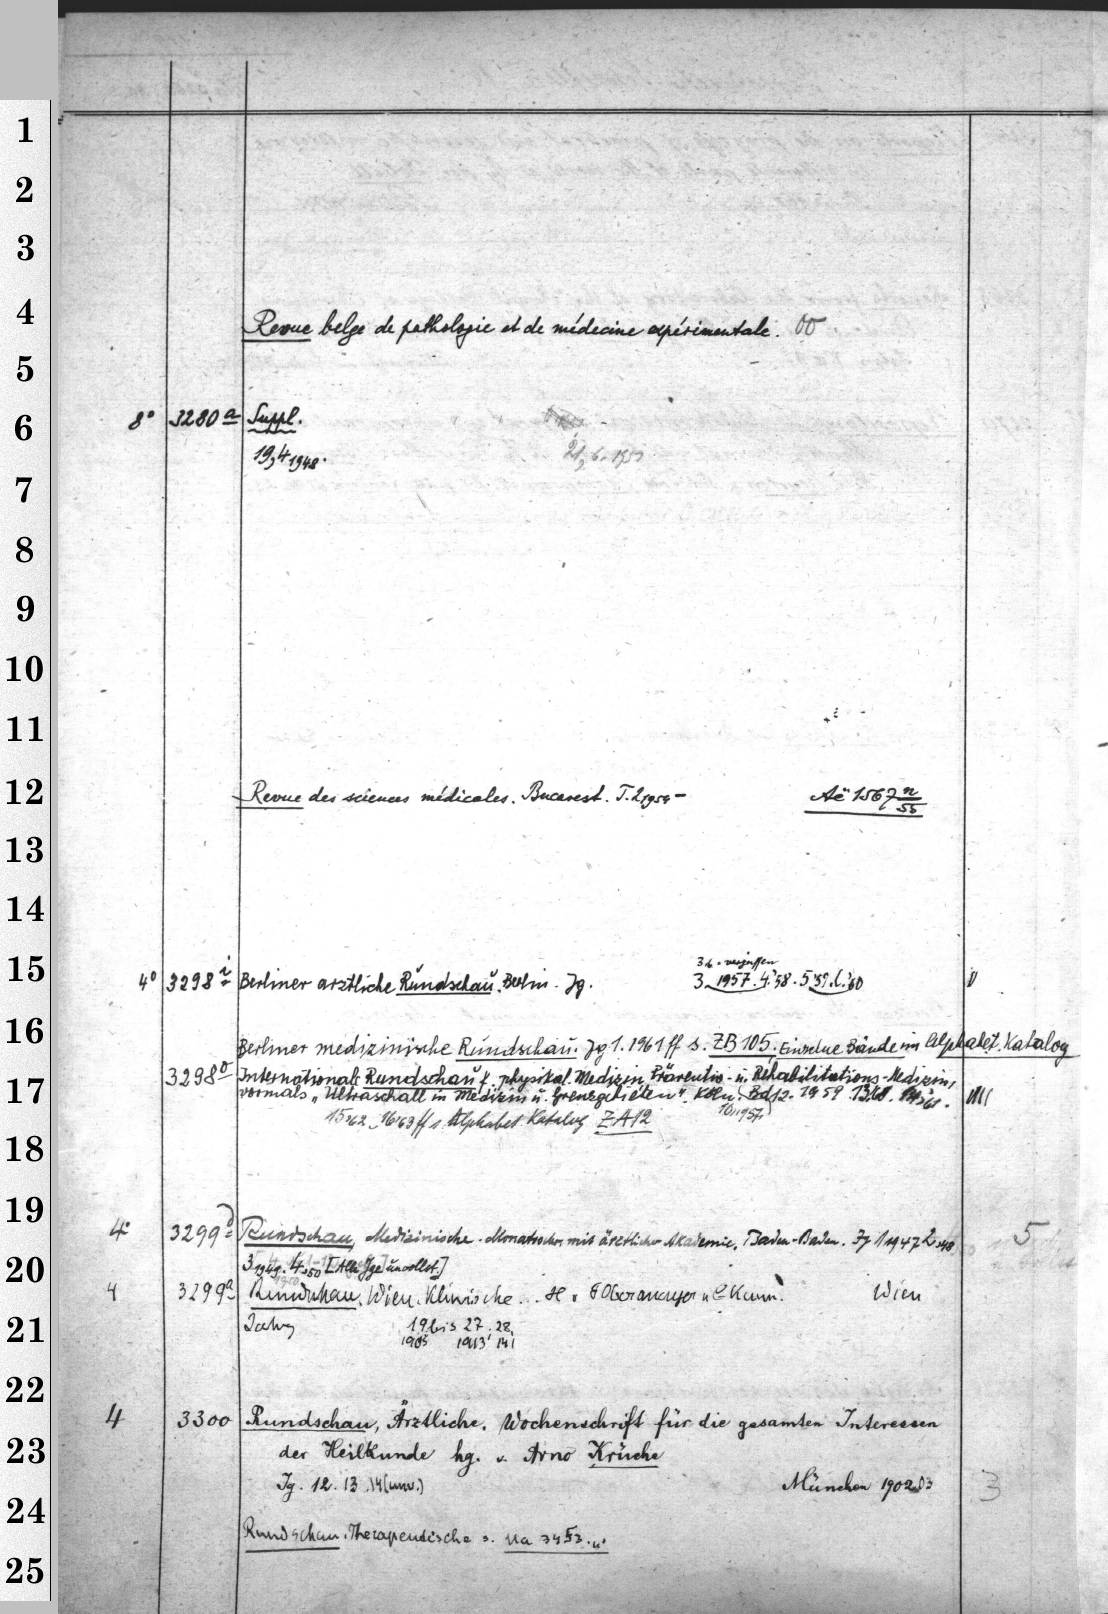 1
2
3
4
Revue belge de pathologie et de médecine expérimentale.
5
6
8° 3280 a Suppl.
19,4 1948.
7
8
9
10
11
12
Revue des sciences médicales. Bucarest. T. 2 1954 – Aë 1567 n/55
13
14
15
4° 3298 i Berliner ärztliche Rundschau. Berlin. Jg. 3. 1957. 4.'58. 5.'59. 6.'60
16
Berliner medizinische Rundschau. Jg 1. 1961 ff s. ZB 105. Einzelne Bände im Alphabet. Katalog
17
3298 o Internationale Rundschau f. physikal. Medizin, Präventiv- u. Rehabilitations-Medizin,
vormals „Ultraschall in Medizin u. Grenzgebieten". Köln. Bd 12. 1959 13,60. 14,61.
10,1957,
15,62. 16,63 ff s. Alphabet Katalog ZA12
18
19
4° 3299 Rundschau, Medizinische. Monatsschr. mit ärztlicher Akademie. Baden-Baden. Jg 1 1947 2,48 5
20
3 1949. 4,50 [Alle Jge unvollst.]
4 3299 a Rundschau, Wien. Klinische... Wien
21
Jahrg 19 bis 27. 28,
1905 1913 1914
22
4 3300 Rundschau, Ärztliche. Wochenschrift für die gesamten Interessen
23
der Heilkunde hg. v. Arno Krüche
Jg. 12. 13. 14 (unv.) München 1902.03 3
24
Rundschau. Therapeutische s.
25